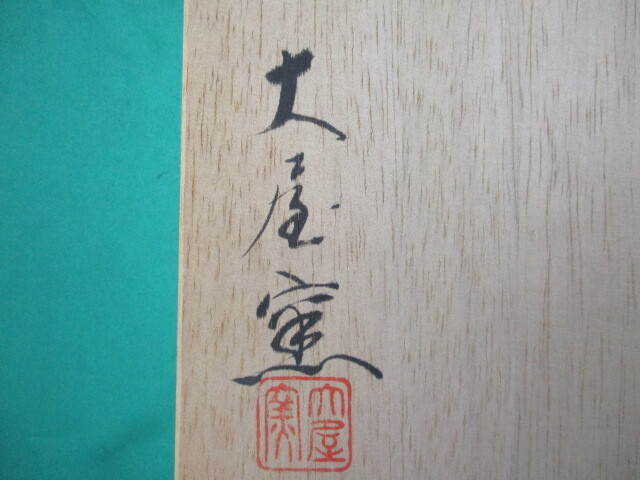 大屋窯
大屋窯